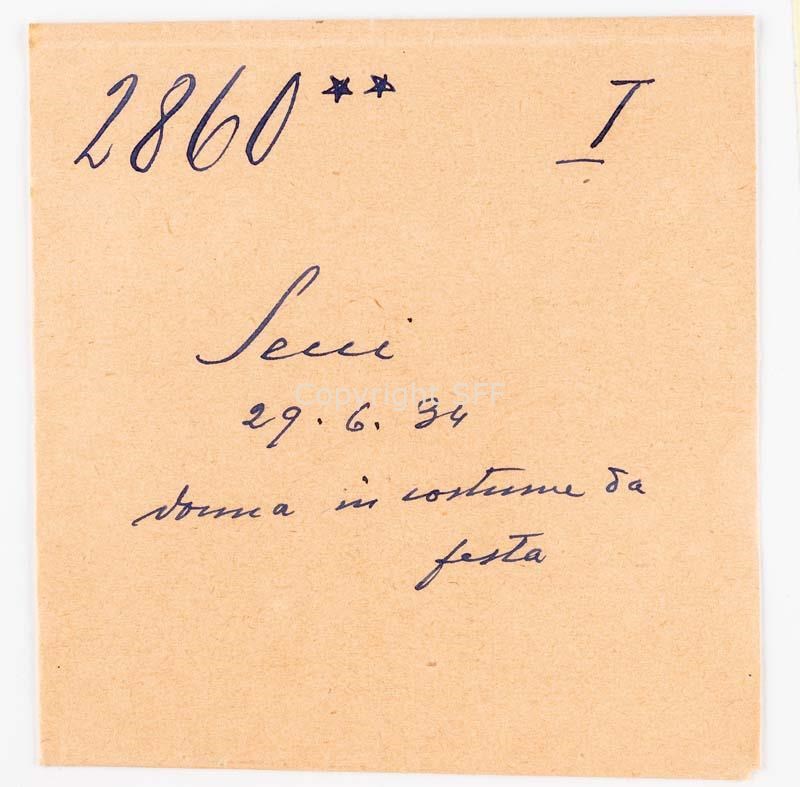 2860** I
Seui
Copyright SFF
29.6.34
donna in costume da
festa